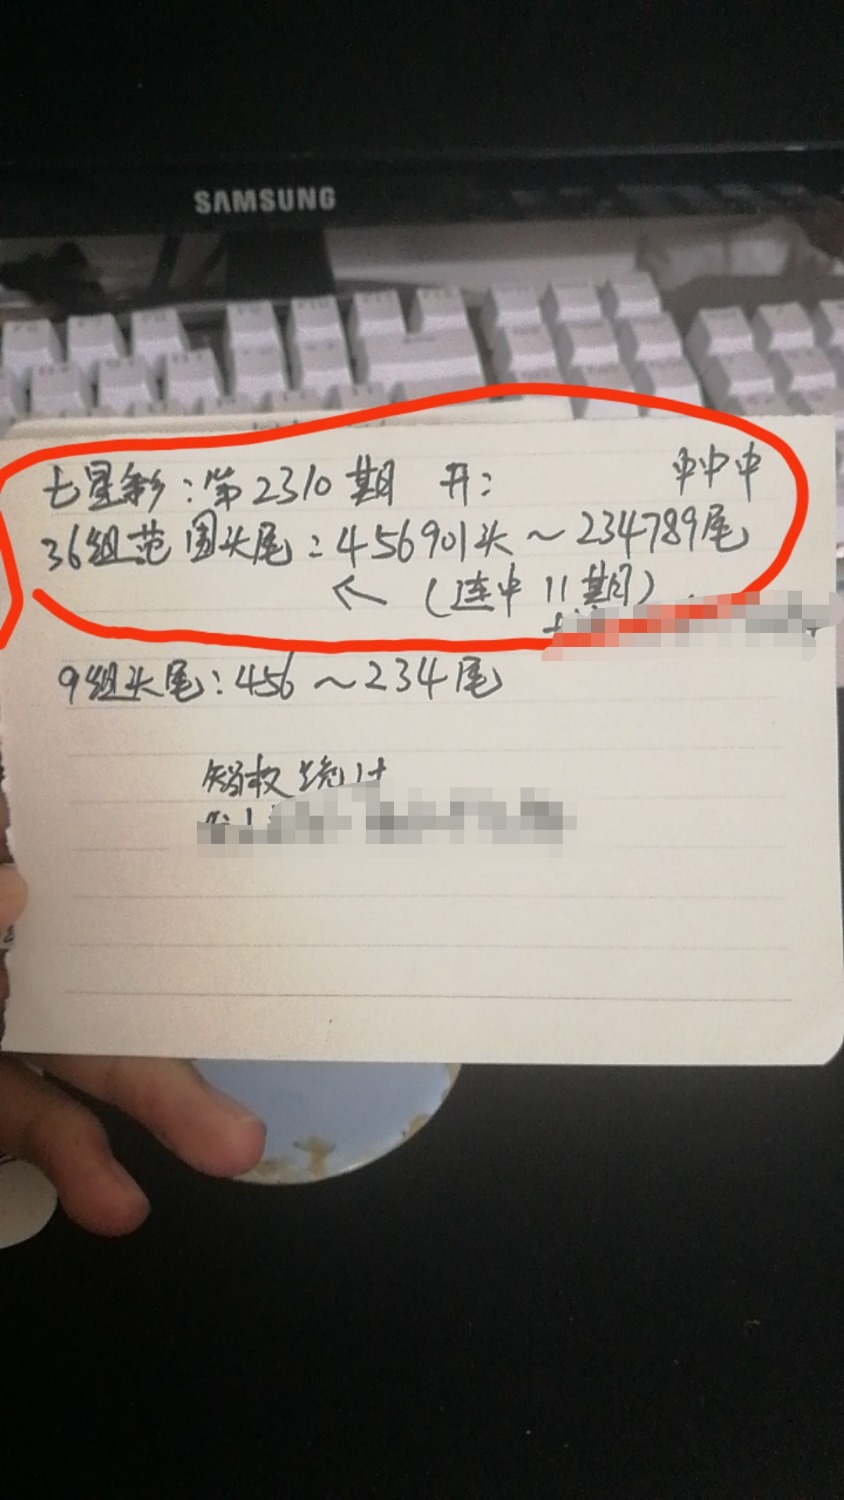 SAMSUNG
七星彩:第2310期 开: 中中中
36组范围头尾:456901头~234789尾
←(连中11期)
9组头尾:456~234尾
统计